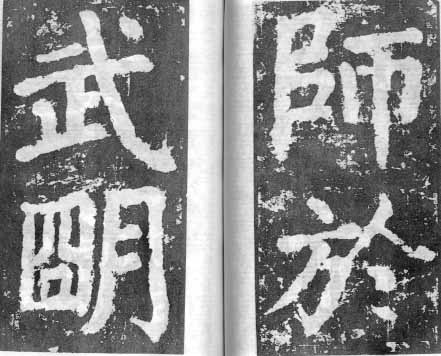 師於
武明